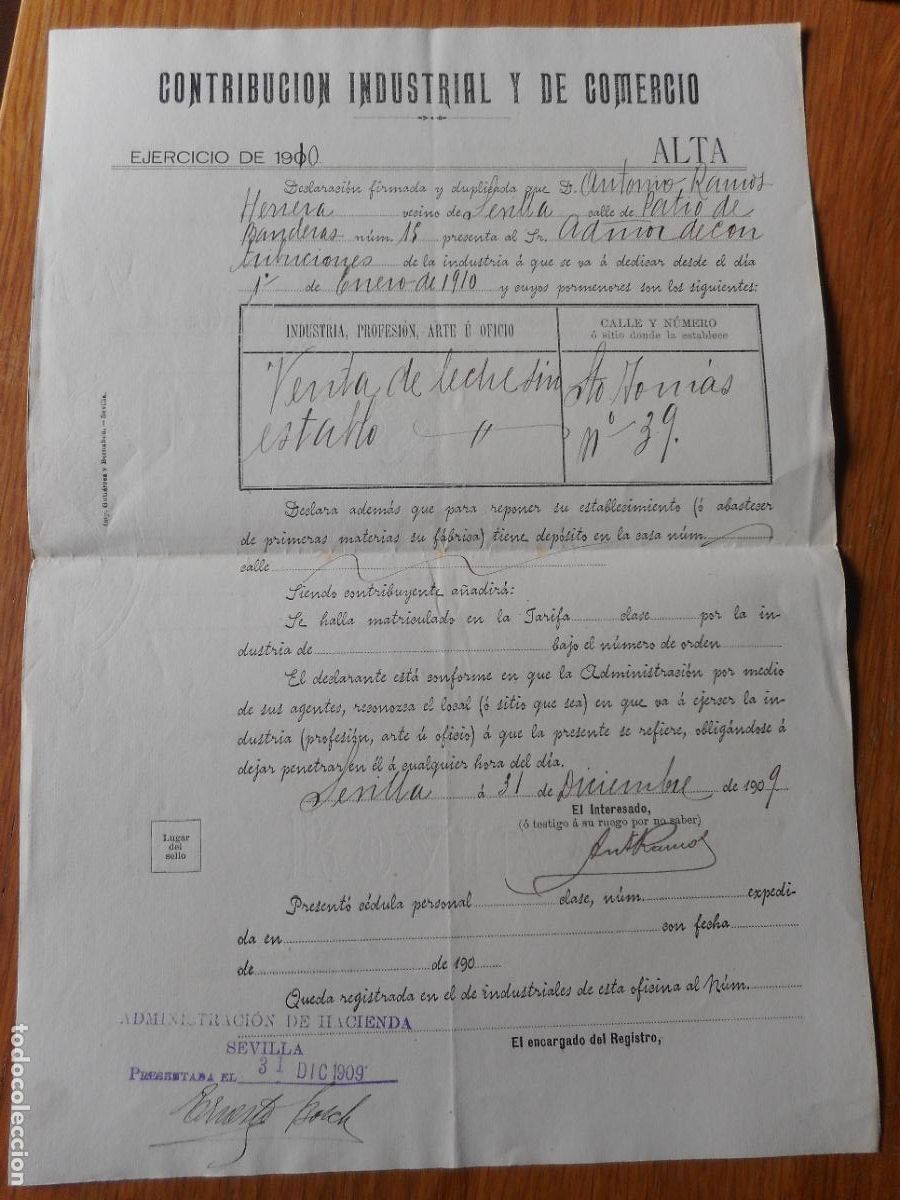 CONTRIBUCION INDUSTRIAL Y DE COMERCIO
EJERCICIO DE 1910
ALTA
Declaración firmada y duplicada que D. Antonio Ramos
Herrera vecino de Sevilla calle de Patio de
Banderas núm. 15 presenta al Sr. Admor de con
tribuciones de la industria á que se va á dedicar desde el día
1º de Enero de 1910 y cuyos pormenores son los siguientes:
INDUSTRIA, PROFESIÓN, ARTE Ú OFICIO
CALLE Y NÚMERO
ó sitio donde la establece
Venta de leche sin
establo
Sto Tomás
nº 39.
Imp. Gutiérrez y Bernabeu.—Sevilla.
Declara además que para reponer su establecimiento (ó abastecer
de primeras materias su fábrica) tiene depósito en la casa núm.
calle
Siendo contribuyente añadirá:
Se halla matriculado en la Tarifa clase por la in-
dustria de bajo el número de orden
El declarante está conforme en que la Administración por medio
de sus agentes, reconozca el local (ó sitio que sea) en que va á ejercer la in-
dustria (profesión, arte ú oficio) á que la presente se refiere, obligándose á
dejar penetrar en él á cualquier hora del día.
Sevilla á 31 de Diciembre de 1909
El Interesado,
(ó testigo á su ruego por no saber)
Ant Ramos
Lugar
del
sello
Presentó cédula personal clase, núm. expedi-
da en con fecha
de de 190
Queda registrada en el de industriales de esta oficina al Núm.
ADMINISTRACIÓN DE HACIENDA
SEVILLA
PRESENTADA EL 31 DIC 1909
El encargado del Registro,
Ernesto Bosch
todocoleccion.net